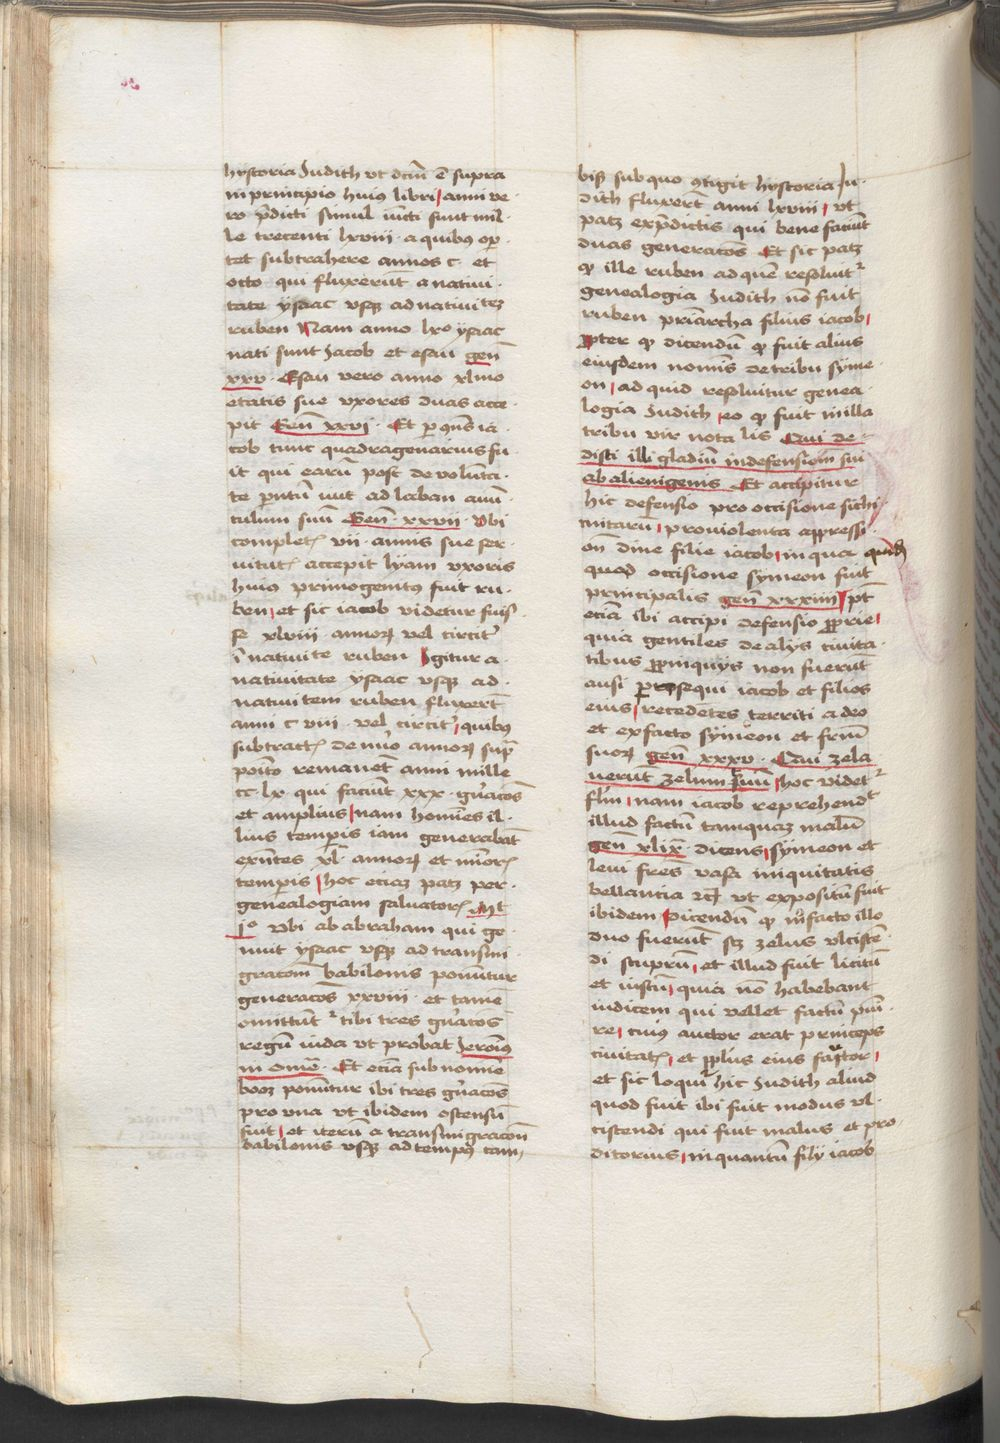 hystoria Judith ut dcm̄ ē supra
in principio huius libri anni ve
ro p̄dicti simul iūcti sunt mil
le trecenti lxviii · a quibꝫ opꝫ
tet subtrahere annos c · et
octo qui fluxerūt a nativi
tate ysaac usqꝫ ad nativitēꝫ
ruben Nam anno lxº ysaac
nati sunt Jacob et esau gen̄
xxv · Esau vero anno xlmo
etatis sue uxores duas acce
pit Gen̄ xxvi · Et ꝑ ꝯn̄s ia
cob tunc quadragenarius fu
it qui earū post de volūta
te parentū ivit ad laban avū
culum suū Gen̄ xxvii · Ubi
completꝭ vii · annis sue ser
vitutꝭ accepit lyam uxoris
huius primogenitus fuit ru
ben et sic iacob videtur fuis
se xlviii · annoꝝ vel circit̉
ī nativite ruben Igitur a
nativitate ysaac usqꝫ ad
nativitem ruben fluxerūt
anni c viii · vel circit̉ quibus
subtractꝭ de nūo annoꝝ sup̄
poīto remanēt anni mille
cc · lx qui faciunt xxx · gn̄acōs
et amplius nam homīes il
lius temꝑis iam generabāt
exn̄tes xl · annoꝝ et mīorꝭ
temꝑis hoc etiaꝫ patꝫ per
genealogiam salvatorꝭ Mt
jº Ubi ab abraham qui ge
nuit ysaac usqꝫ ad transmi
gracom̄ babilonis ponūtur
generacōs xxviii · et tamē
omittūt̉ tibi tres gn̄acōs
regū iuda ut probat Jeroīmꝰ
in omē · Et etiā sub nomīe
booz ponūtur ibi tres gn̄acōs
pro una ut ibidem ostensū
fuit et iterū a transmigracōn
babilonis usqꝫ ad tempꝰ cam
bisꝫ sub quo ꝯtigit hystoria Ju
dith fluxerūt anni lxviii ut
patꝫ ex p̄dictis qui bene faciūt
duas generacōs Et sic patꝫ
qꝫ ille ruben ad quē resolvit̉
genealogia Judith nō fuit
ruben pr̄iarcha filius iacob
ꝓpter qꝫ dicendū qꝫ fuit alius
eiusdem nomīs de tribu syme
on ad quid resolvitur genea
logia Judith eo qꝫ fuit in illa
tribu vir notalis Qui de
disti illi gladiū in defensiom̄ sui
ab alienigenis Et accipitur
hic defensio pro occisione sichi
mitarū pro violenta oppressi
on̄ dine filie iacob in qua quidē
quod occisione symeon fuit
principalis gen̄ xxxiiii pt̄
etiā ibi accipi defensio ꝓprie
quia gentiles de alys civita
tibus ꝓpinquys non fuerūt
ausi ꝑsequi iacob et filios
eius recedētes territi a deo
et ex facto symeon et frm̄
suoꝝ gen̄ xxxv · Qui zela
verūt zelum tuū hoc videt̉
flm̄ nam iacob reprehendt̄
illud factū tamquaꝫ malū
gen̄ xlix · dicens symeon et
levi fres̄ vasa iniquitatis
bellantia rc̄ꝭ ut expositū fuit
ibidem Dicendū qꝫ in facto illo
duo fuerūt scꝫ zelus ulciscē
di stuprū et illud fuit licitū
et iustū quia nō habebant
iudicem qui vellet factū puī
re cuius auctor erat princeps
civitatꝭ et pplus eius fautor
et sic loquit̉ hic Judith aliud
quod fuit ibi fuit modus ul
ciscendi qui fuit malus et pro
ditorius in quantū fily iacob